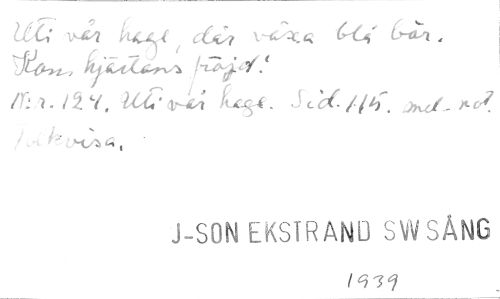 Uti vår hage, där växa blå bär.
Kom hjärtans fröjd!
N:r. 124. Uti vår hage. Sid. 115. med not.
Folkvisa.
J-SON EKSTRAND SW SÅNG
1939